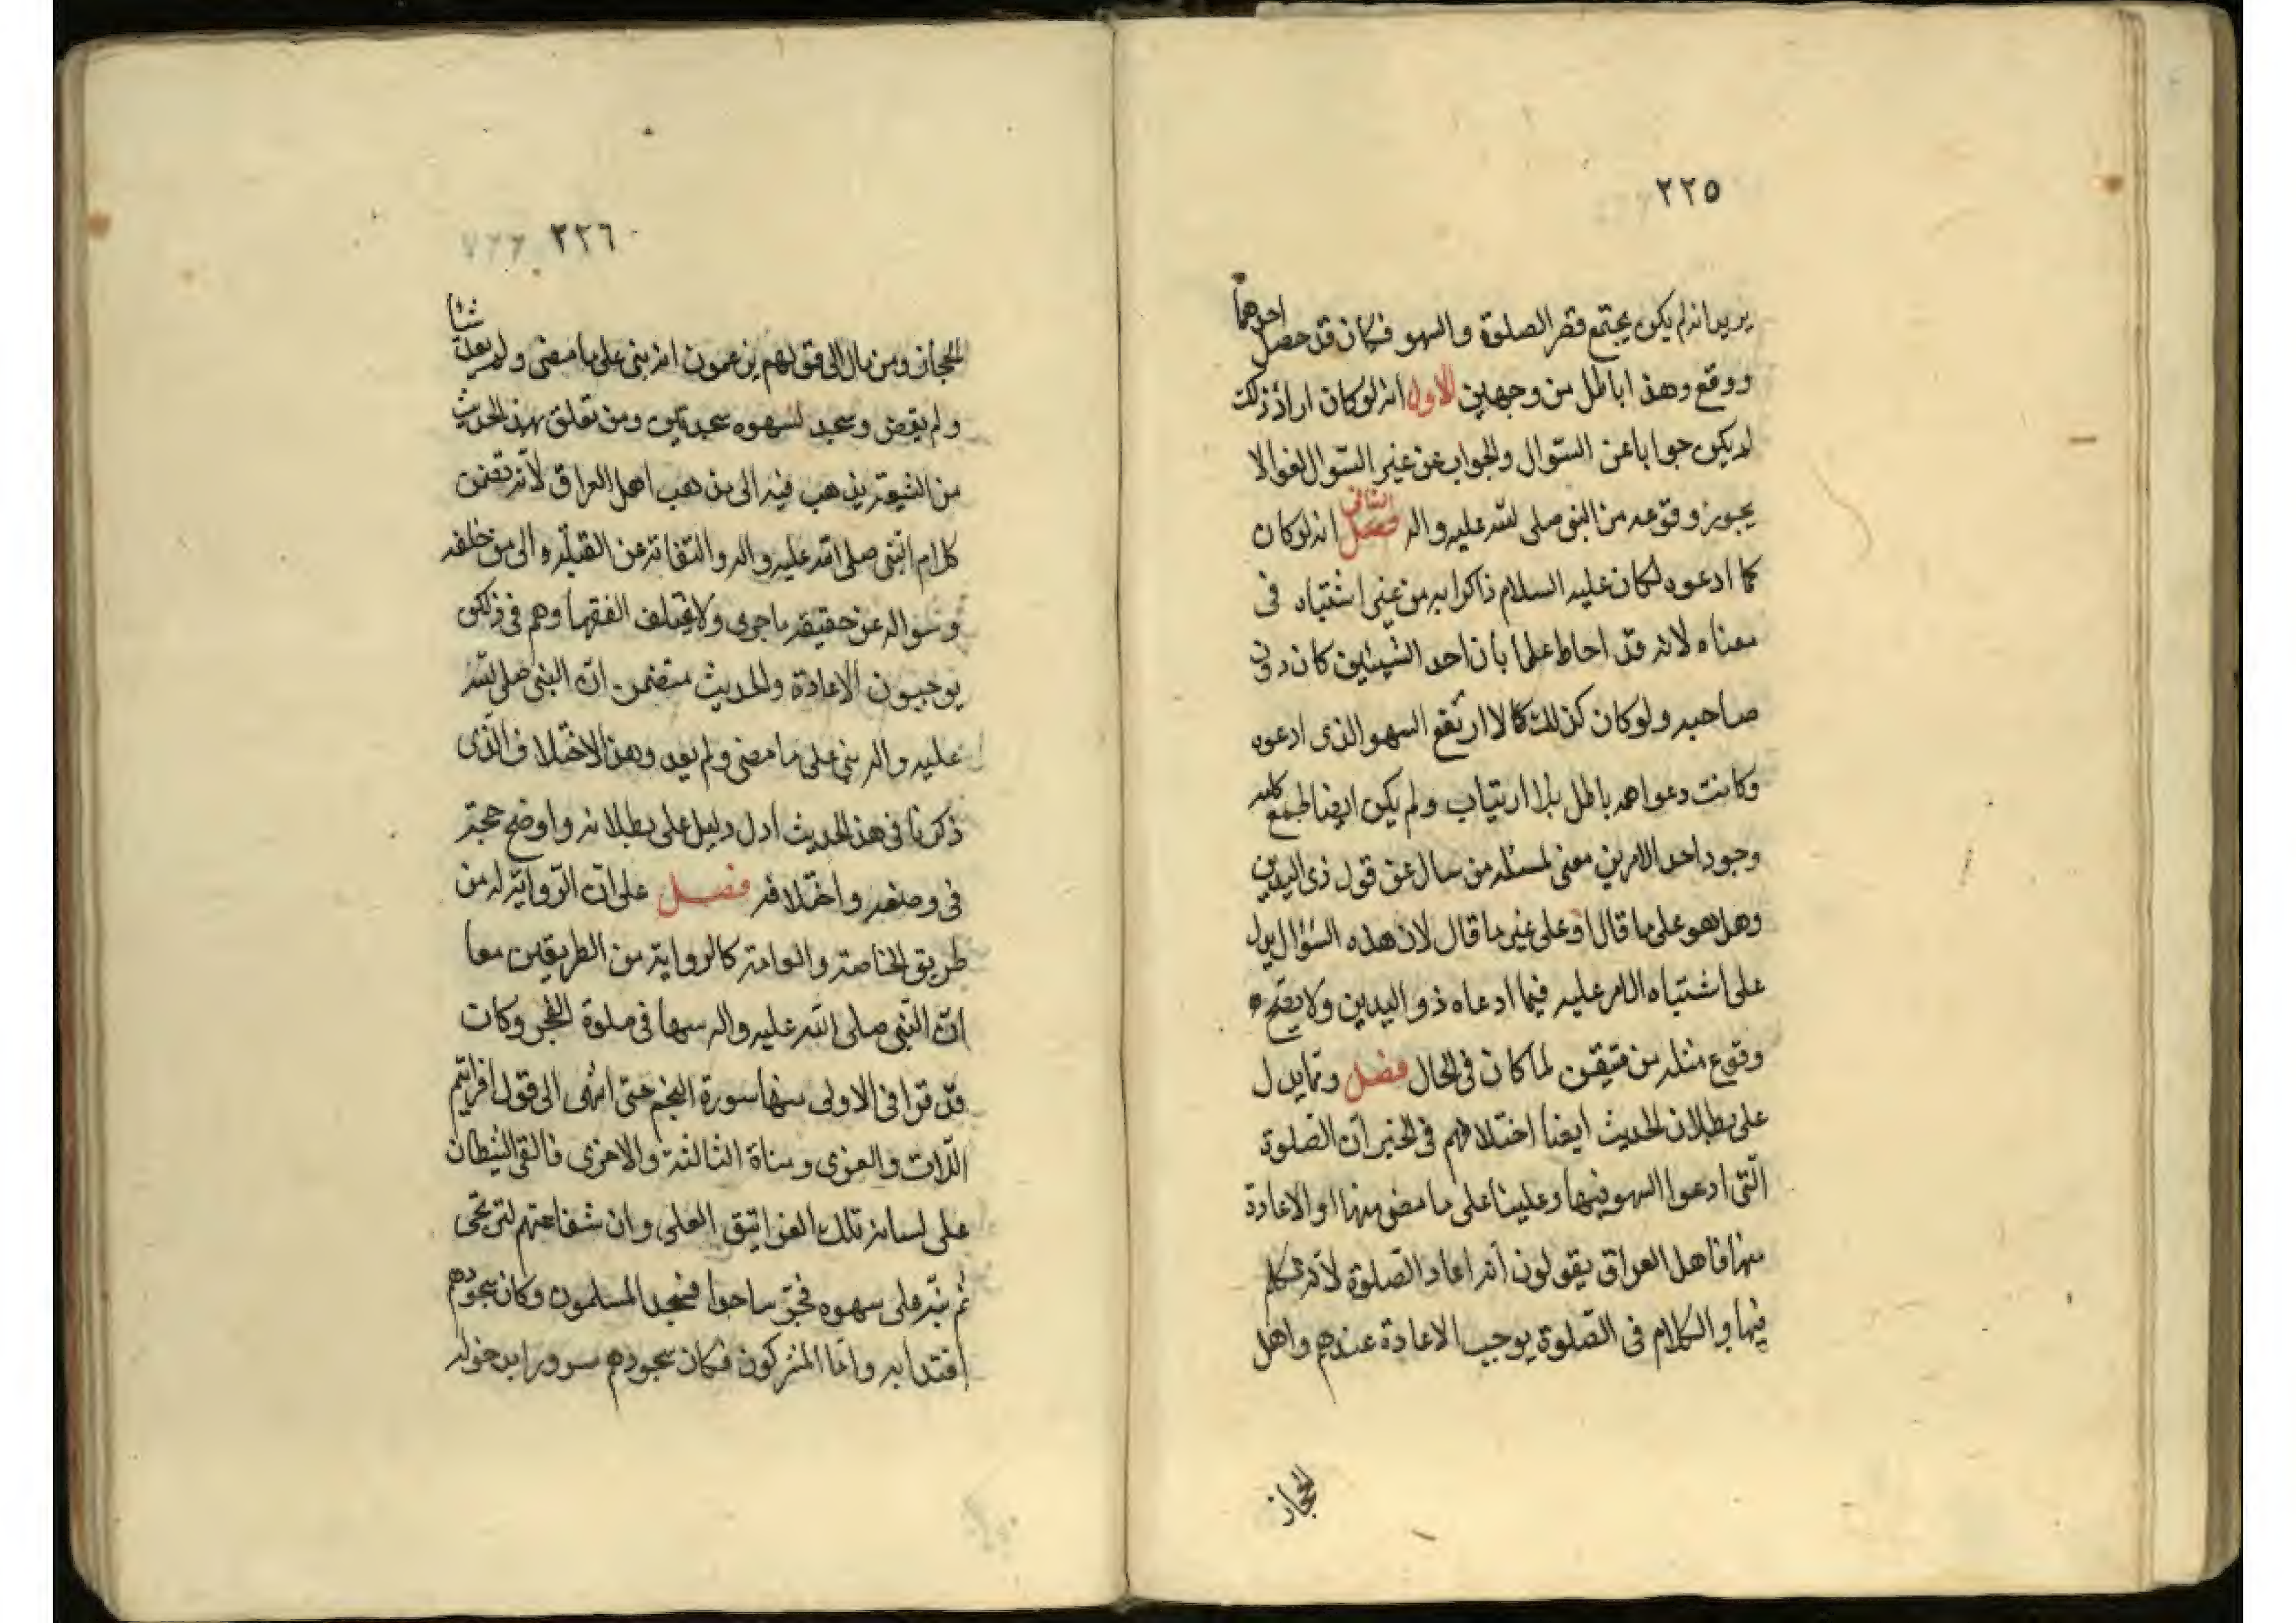 ٢٢٥
يريد انه لم يكن يجتمع قصر الصلوة والسهو فكان قد حصل احدهما
ووقع وهذا باطل من وجهين الاول انه لو كان اراد ذلك
لم يكن جوابا عن السّوال والجواب عن غير السّوال لغو الا
يجوز وقوعه من النبى صلى الله عليه واله فصل الثانى انه لو كان
كما ادعوه لكان عليه السلام ذاكرا به من غير اشتباه فى
معناه لانه قد احاط علما بأن احد الشيئين كان دون
صاحبه ولو كان كذلك كالا ارتفع السهو الذى ادعوه
وكانت دعواهم باطل بلا ارتياب ولم يكن ايضا
وجود احد الامرين معنى لمسئله من سال عن قول ذى اليدين
وهل هو على ما قال او على غير ما قال لان هذه السؤال يدل
على اشتباه الامر عليه فيما ادعاه ذو اليدين ولا يصح
وقوع مثله من متيقن لما كان فى الحال فصل وتما يدل
على بطلان الحديث ايضا اختلافهم فى الخبر ان الصلوة
الّتى ادعوا السهو فيها وعلينا على ما مضى منها او الاعادة
منها فاهل العراق يقولون انه اعاد الصّلوة لانه تكلم
فيها والكلام فى الصّلوة يوجب الاعادة عندهم واهل
الحجاز
٢٢٦
الحجاز ومن مال الى قولهم يزعمون انه بنى على ما مضى ولم يعد شئا
ولم يقض وسجد لسهوه سجدتين ومن تعلق بهذ الحديث
من الشيعة يذهب فيه الى مذهب اهل العراق لانّه تضمن
كلام النّبى صلى الله عليه واله والتفاته عن القبلة الى من خلفه
وسواله عن حقيقه ما جرى ولا يختلف الفقها وهم فى ذلك
يوجبون الاعادة والحديث متضمن انّ النبى صلى الله
عليه واله بنى على ما مضى ولم يعد وهذ الاختلاف الذّى
ذكرنا فى هذ الحديث ادل دليل على بطلانه واوضح حجة
فى وضعه واختلافه فصل على انّ الرّواية له من
طريق الخاصة والعامة كالرواية من الطريقين معا
انّ النّبى صلى الله عليه واله سها فى صلوة الفجر وكان
قد قرا فى الاولى منها سورة النجم حتى انتهى الى قول افرايتم
اللّات والعزى ومناة الثالثة والاخرى فالقى الشيطان
على لسانه تلك الغرانيق العلى وان شفاعتهم لترتجى
ثم نبّه على سهوه فخرّ ساجدا فسجد المسلمون وكان سجودهم
اقتدا به وامّا المشركون فكان سجودهم سرورا بدخوله